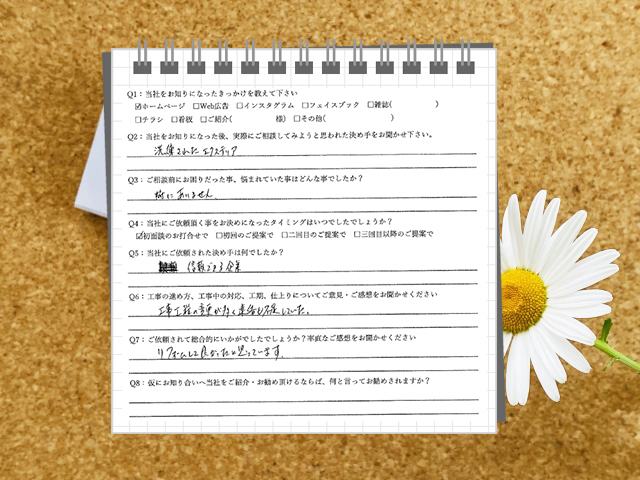 Q1：当社をお知りになったきっかけを教えて下さい
☑ホームページ　□Web広告　□インスタグラム　□フェイスブック　□雑誌(　　　　)
□チラシ　□看板　□ご紹介(　　　　様)　□その他(　　　　　　)
Q2：当社をお知りになった後、実際にご相談してみようと思われた決め手をお聞かせ下さい。
洗練された エクステリア
Q3：ご相談前にお困りだった事、悩まれていた事はどんな事でしたか？
特にありません
Q4：当社にご依頼頂く事をお決めになったタイミングはいつでしたでしょうか？
☑初面談のお打合せで　□初回のご提案で　□二回目のご提案で　□三回目以降のご提案で
Q5：当社にご依頼された決め手は何でしたか？
信頼できる企業
Q6：工事の進め方、工事中の対応、工期、仕上りについてご意見・ご感想をお聞かせください
工事工程の
Q7：ご依頼されて総合的にいかがでしたでしょうか？率直なご感想をお聞かせください
リフォームして良かったと思っています。
Q8：仮にお知り合いへ当社をご紹介・お勧め頂けるならば、何と言ってお勧めされますか？